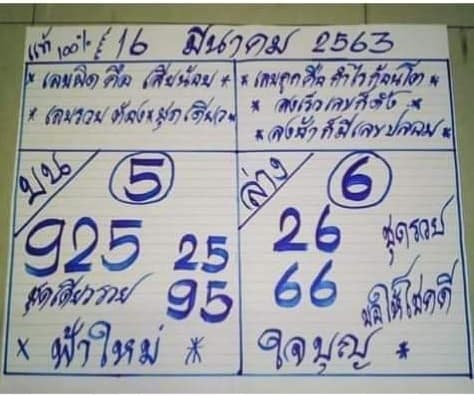 แท้ 100% 16 มีนาคม 2563
* เลขผิดคือ เสียน้อย *
* เลขถูกคือ กำไรก้อนโต *
* เลขรวย ต้อง ชุดเดียว *
* ลงเร็วเลขก็ดัง *
* ลงช้าก็มีเลขปลอม *
บน 5
ล่าง 6
925 25
26 ชุดรวย
ชุดเดียวรวย 95
66 ขอให้โชคดี
x ฟ้าใหม่ *
ใจบุญ *